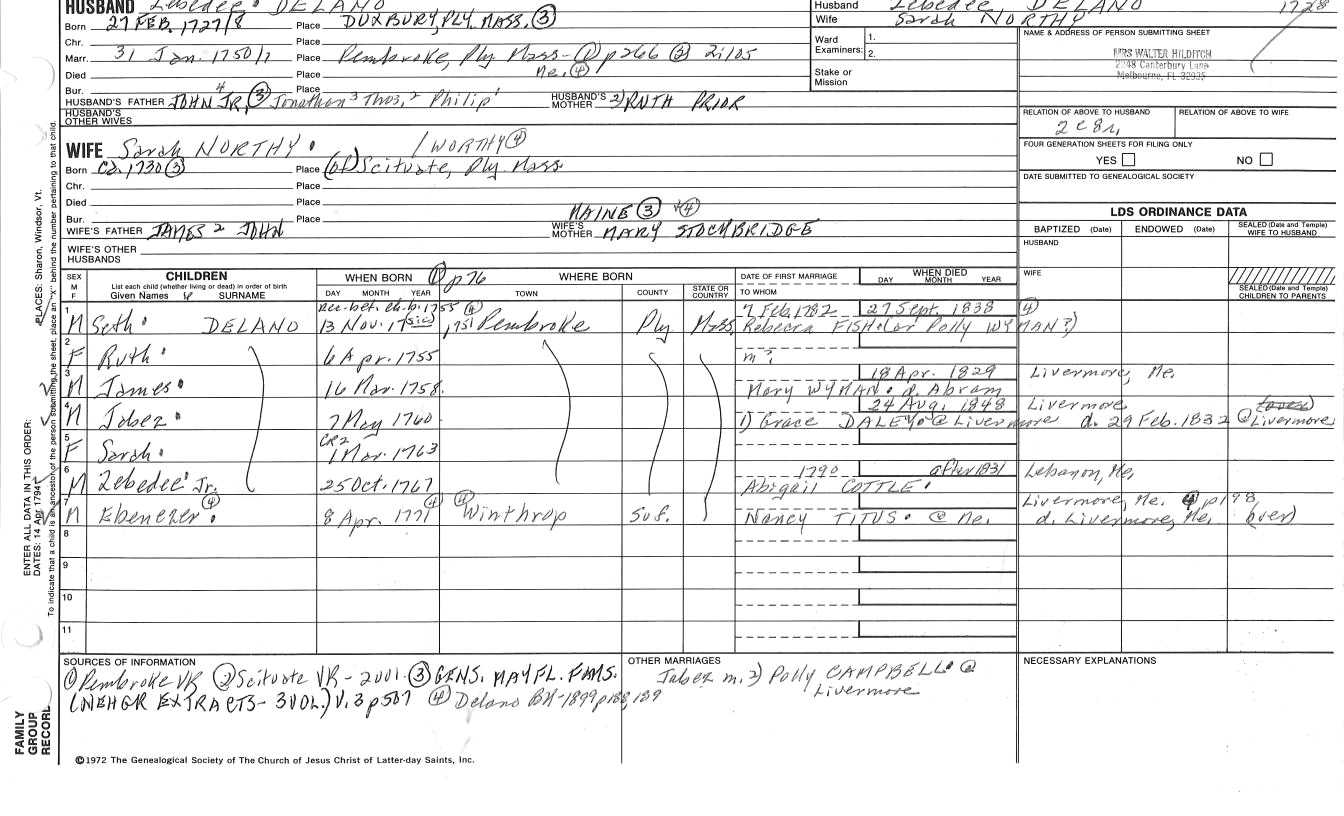 HUSBAND Zebedee DELANO
Born 27 FEB. 1727/8 Place DUXBURY, PLY, MASS. ③
Chr. Place
Marr. 31 Jan. 1750/1 Place Pembroke, Ply Mass - ① p266 ②
Died Place Me. ④
Bur. Place
HUSBAND'S FATHER JOHN JR,⁴ ③ Jonathan³ Thos,² Philip¹ HUSBAND'S MOTHER 2) RUTH PRIOR
HUSBAND'S OTHER WIVES
WIFE Sarah NORTHY. / WORTHY ④
Born ca. 1730 ③ Place (of) Scituate, Ply Mass
Chr. Place
Died Place
Bur. Place MAINE ③ ④
WIFE'S FATHER JAMES² JOHN WIFE'S MOTHER MARY STOCKBRIDGE
WIFE'S OTHER HUSBANDS
Husband Zebedee DELANO 1728
Wife Sarah NORTHY
Ward Examiners: 1.
2.
Stake or Mission
NAME & ADDRESS OF PERSON SUBMITTING SHEET
MRS WALTER HILDITCH
2248 Canterbury Lane
Melbourne, FL 32935
RELATION OF ABOVE TO HUSBAND RELATION OF ABOVE TO WIFE
2c8r,
FOUR GENERATION SHEETS FOR FILING ONLY
YES NO
DATE SUBMITTED TO GENEALOGICAL SOCIETY
LDS ORDINANCE DATA
BAPTIZED (Date) ENDOWED (Date) SEALED (Date and Temple) WIFE TO HUSBAND
HUSBAND
WIFE
SEALED (Date and Temple) CHILDREN TO PARENTS
SEX M F CHILDREN WHEN BORN ① p76 WHERE BORN DATE OF FIRST MARRIAGE WHEN DIED
List each child (whether living or dead) in order of birth
Given Names SURNAME DAY MONTH YEAR TOWN COUNTY STATE OR COUNTRY TO WHOM DAY MONTH YEAR
Rec. bet. ch. b. 1755 ④ 7 Feb, 1782 27 Sept. 1838 ④
1 M Seth. DELANO 13 Nov. 17 (sic) 1751 Pembroke Ply Mass, Rebecca FISH (or Polly WYMAN?)
2 F Ruth. 6 Apr. 1755 m?
18 Apr. 1829 Livermore, Me.
3 M James. 16 Mar. 1758. Mary WYMAN. d. Abram
24 Aug, 1848 Livermore (over)
4 M Jabez. 7 May 1760 1) Grace DALEY. @ Livermore d. 29 Feb. 1832 @ Livermore
CR2
5 F Sarah. 1 Mar. 1763
1790 after 1831 Lebanon, Me,
6 M Zebedee Jr. 25 Oct. 1767 Abigail COTTLE.
Livermore, Me. 4 p198,
7 M Ebenezer. ④ 8 Apr. 1771 ④ ④ Winthrop Suf. Nancy TITUS. @ Me. d. Livermore, Me, (over)
8
9
10
11
SOURCES OF INFORMATION
① Pembroke VR ② Scituate VR - 2001. ③ GENS. MAYFL. FAMS.
(NEHGR EXTRACTS - 3 VOL.) V. 3 p507 ④ Delano BK-1899 p188, 189
OTHER MARRIAGES
Jabez m. 2) Polly CAMPBELL. @
Livermore
NECESSARY EXPLANATIONS
©1972 The Genealogical Society of The Church of Jesus Christ of Latter-day Saints, Inc.
FAMILY GROUP RECORD
ENTER ALL DATA IN THIS ORDER:
DATES: 14 Apr 1794
PLACES: Sharon, Windsor, Vt.
To indicate that a child is an ancestor of the person submitting the sheet, place an "X" behind the number pertaining to that child.